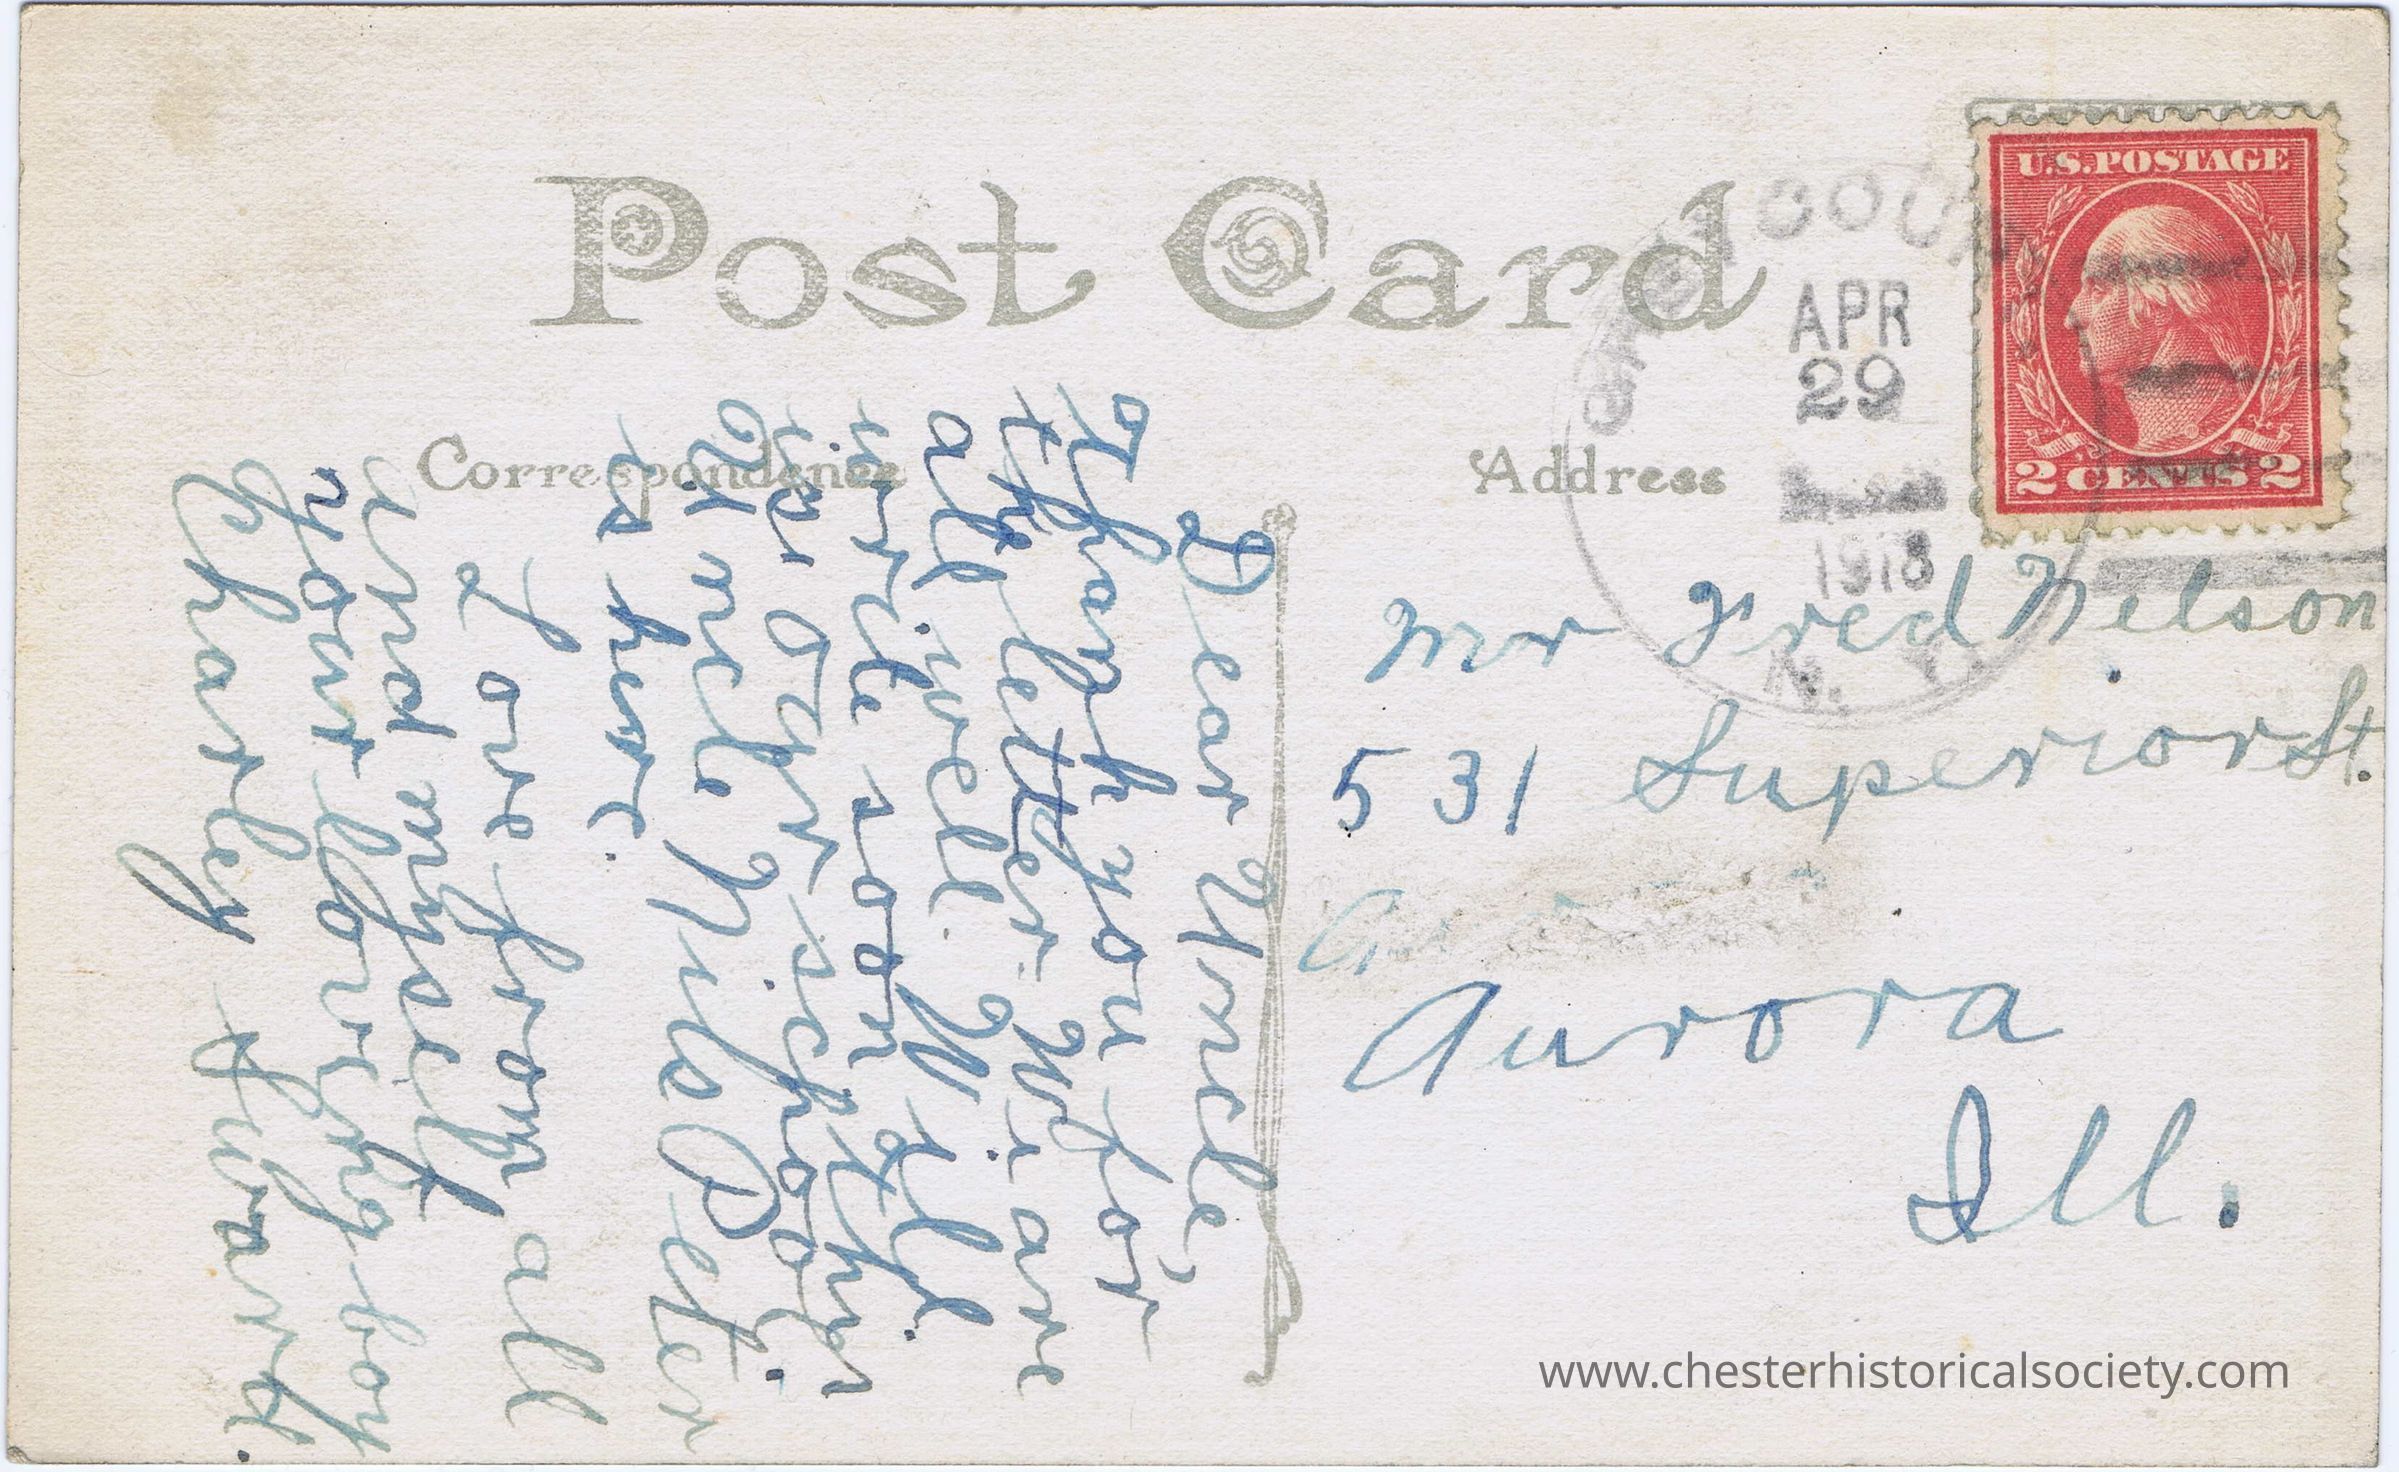 Post Card
Correspondence
Address
U.S. POSTAGE
2 CENTS 2
GREYCOURT
APR
29
1918
N. Y.
Dear Uncle,
Thank you for
the letter. Wi are
all well. Will
write soon
Our school.
Uncle Nils Peter
is here.
Love from all
and myself
your loveing boy
Charley
Mr Fred Nelson
531 Superior St.
Aurora
Ill.
www.chesterhistoricalsociety.com